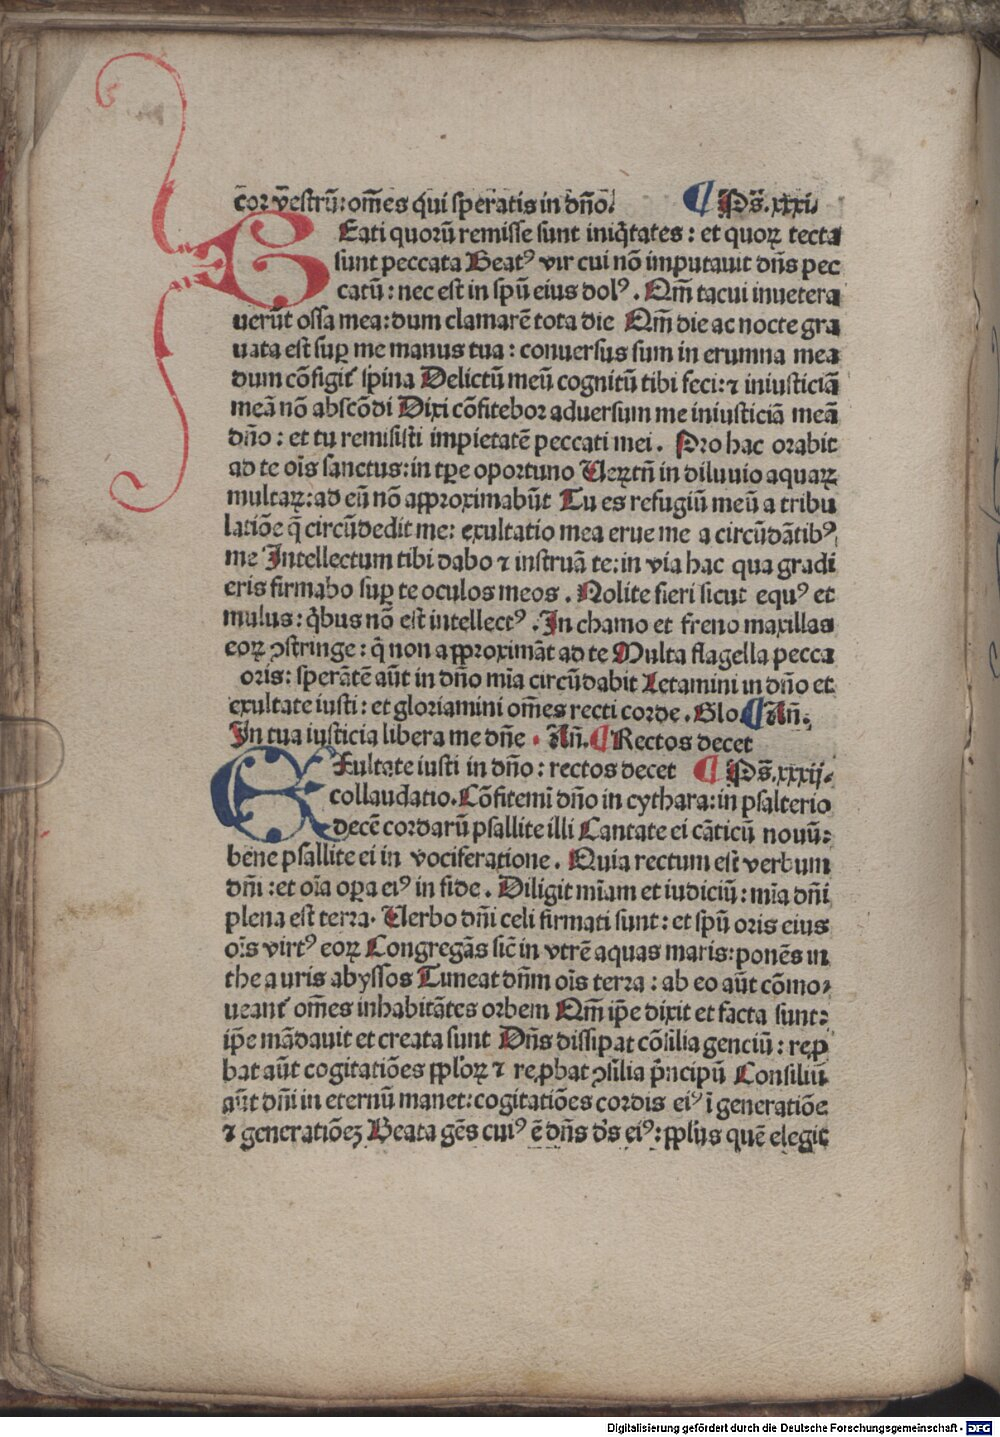 cor vestrū: om̄es qui speratis in dn̄o. ¶ Ps̄.xxxi.
BEati quorū remisse sunt iniq̇tates : et quoꝝ tecta
sunt peccata Beatꝰ vir cui nō imputauit dn̄s pec
catū : nec est in spū eius dolꝰ . Qm̄ tacui inuetera
uerūt ossa mea: dum clamarē tota die Qm̄ die ac nocte gra
uata est suꝑ me manus tua : conuersus sum in erumna mea
dum cōfigit᷑ spina Delictū meū cognitū tibi feci: ⁊ iniusticiā
meā nō abscōdi Dixi cōfitebor aduersum me iniusticiā meā
dn̄o : et tu remisisti impietatē peccati mei . Pro hac orabit
ad te oīs sanctus: in tꝑe oportuno Ueꝝtn̄ in diluuio aquaꝝ
multaꝝ: ad eū nō approximabūt Tu es refugiū meū a tribu
latiōe q̄ circūdedit me: exultatio mea erue me a circūdātibꝰ
me Intellectum tibi dabo ⁊ instruā te: in via hac qua gradi
eris firmabo suꝑ te oculos meos . Nolite fieri sicut equꝰ et
mulus : q̇bus nō est intellectꝰ . In chamo et freno maxillas
eoꝝ ꝯstringe : q̄ non approximāt ad te Multa flagella pecca
oris: sperātē aūt in dn̄o mīa circūdabit Letamini in dn̄o et
exultate iusti : et gloriamini om̄es recti corde . Glo. ¶ An̄.
In tua iusticia libera me dn̄e . An̄. ¶ Rectos decet
EXultate iusti in dn̄o : rectos decet ¶ Ps̄.xxxij.
collaudatio. Cōfitemī dn̄o in cythara: in psalterio
decē cordarū psallite illi Cantate ei cāticū nouū:
bene psallite ei in vociferatione . Quia rectum est verbum
dn̄i : et oīa oꝑa eiꝰ in fide . Diligit mīam et iudiciū : mīa dn̄i
plena est terra. Uerbo dn̄i celi firmati sunt : et spū oris eius
oīs virtꝰ eoꝝ Congregās sic̄ in vtrē aquas maris: ponēs in
thesauris abyssos Timeat dn̄m oīs terra : ab eo aūt cōmo⸗
ueant᷑ om̄es inhabitātes orbem Qm̄ ip̄e dixit et facta sunt:
ip̄e mādauit et creata sunt Dn̄s dissipat cōsilia genciū : reꝓ
bat aūt cogitatiōes pplóꝝ ⁊ reꝓbat ꝯsilia pncipū Consiliū
aūt dn̄i in eternū manet: cogitatiōes cordis eiꝰ ī generatiōe
⁊ generatiōeꝫ Beata gēs cuiꝰ ē dn̄s ds̄ eiꝰ: pplu̓s quē elegit
Digitalisierung gefördert durch die Deutsche Forschungsgemeinschaft - DFG